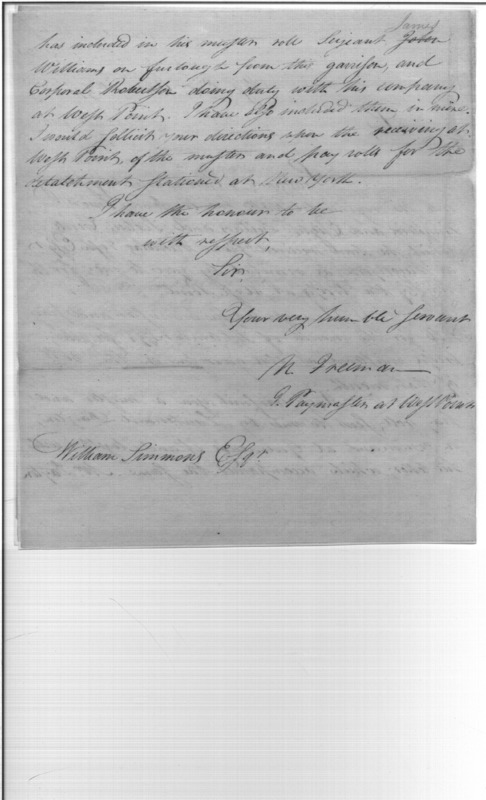 James
has included in his muster roll Serjeant John
Williams on furlough from this garrison, and
Corporal Robertson doing duty with his company
at West Point. I have also included them in mine.
I would sollicit your directions upon the receiving at
West Point, of the muster and pay rolls for the
detatchment stationed at New York.
I have the honour to be
with respect,
Sir
Your very humble Servant
N Freeman
Paymaster at West Point
William Simmons Esqr